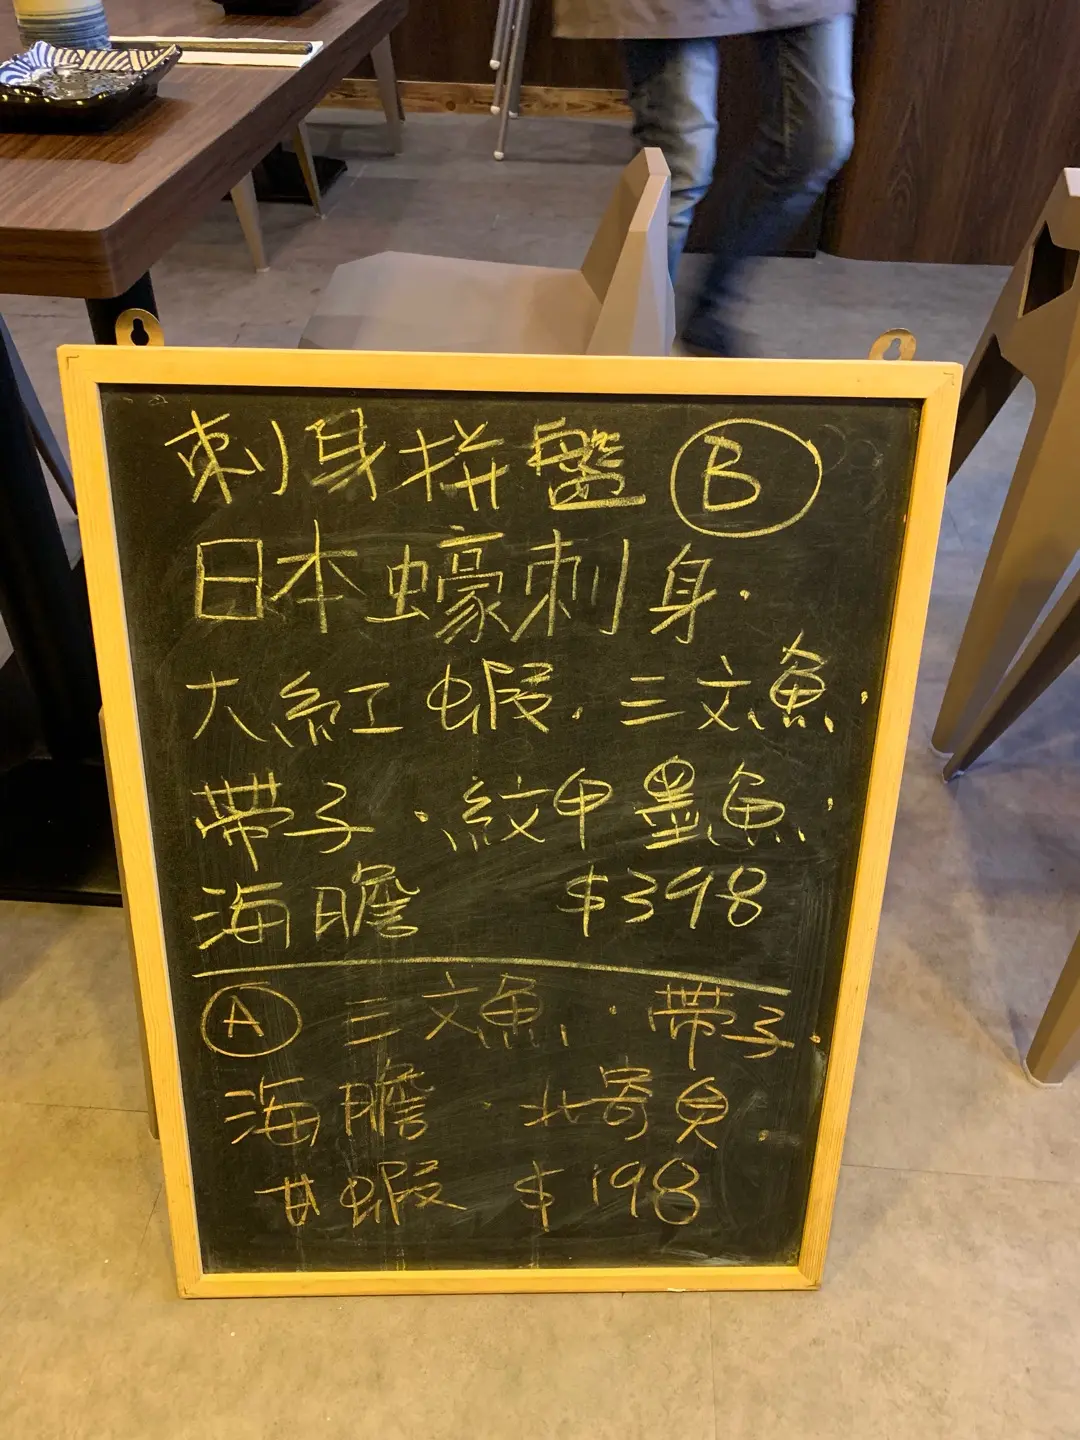 刺身拼盤 B
日本蠔刺身.
大紅蝦.三文魚.
帶子.紋甲墨魚.
海膽 $398
A 三文魚.帶子.
海膽.北寄貝.
甘蝦 $198